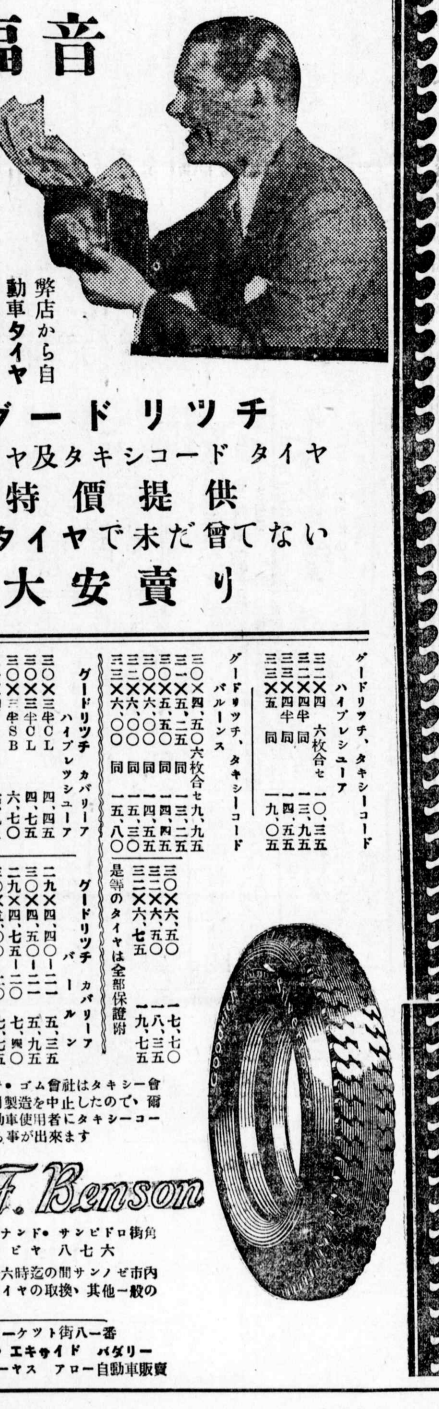 福音
弊店から自
動車タイヤ
グードリツチ
ヤ及タキシコード タイヤ
特價提供
タイヤで未だ曾てない
大安賣り
グードリツチ、タキシーコード
ハイプレシユーア
三二×四 六枚合セ 一〇、三五
三二×四半 同 一三、九五
三三×四半 同 一四、五五
三三×五 同 一九、〇五
グードリツチ、タキシーコード
バルーンス
三〇×四、五〇 六枚合セ 九、九五
三一×五、二五 同 一三、二五
三〇×五、五〇 同 一四、四五
三〇×六、〇〇 同 一四、五五
三二×六、〇〇 同 一五、三〇
三三×六、〇〇 同 一五、八〇
三〇×六、五〇 一七、七〇
三二×六、五〇 一八、三五
三二×六、七五 一九、七五
是等のタイヤは全部保證附
グードリツチ カバリーア
ハイプレツシユーア
三〇×三半CL 四、四五
三〇×三半CL 四、七五
三〇×三半SB 六、七〇
グードリツチ カバリーア
バルーン
二九×四、四〇―二一 五、三五
三〇×四、五〇―二一 五、九五
二九×四、七五―二〇 七、四〇
ゴム會社はタキシー會
製造を中止したので、爾
動車使用者にタキシーコー
事が出來ます
F. Benson
ナンド・サンピドロ街角
ビヤ 八七六
六時迄の間サンノゼ市內
イヤの取換、其他一般の
ーケツト街八一番
エキサイド バダリー
ーヤス アロー自動車販賣